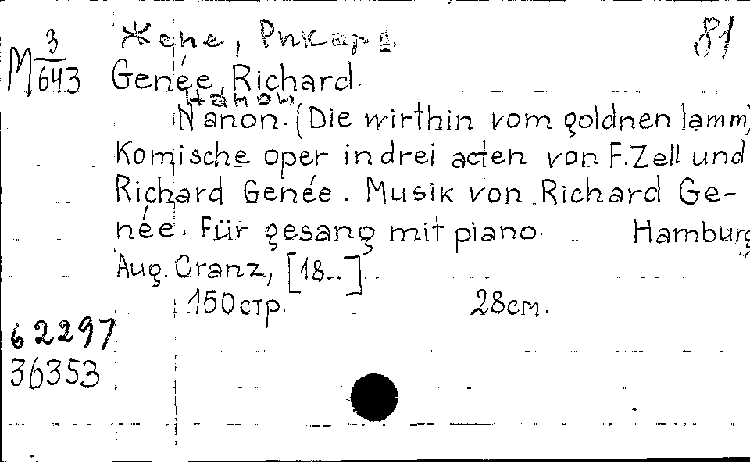 Жене, Рикард 81
М 3/643
Genée, Richard
Нанон
Nanon. (Die wirthin vom goldnen lamm)
Komische oper in drei acten von F. Zell und
Richard Genée. Musik von Richard Ge-
née. Für gesang mit piano. Hamburg
Aug. Cranz, [18..]
150 стр. 28 см.
62297
36353